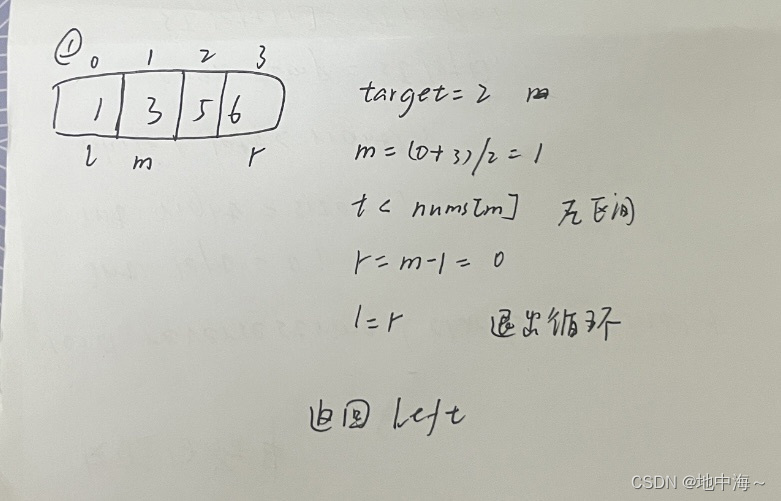 ① 0 1 2 3
1 3 5 6
l m r
target = 2 m
m = (0+3)/2 = 1
t < nums[m] 左区间
r = m-1 = 0
l = r 退出循环
返回 left
CSDN @地中海~